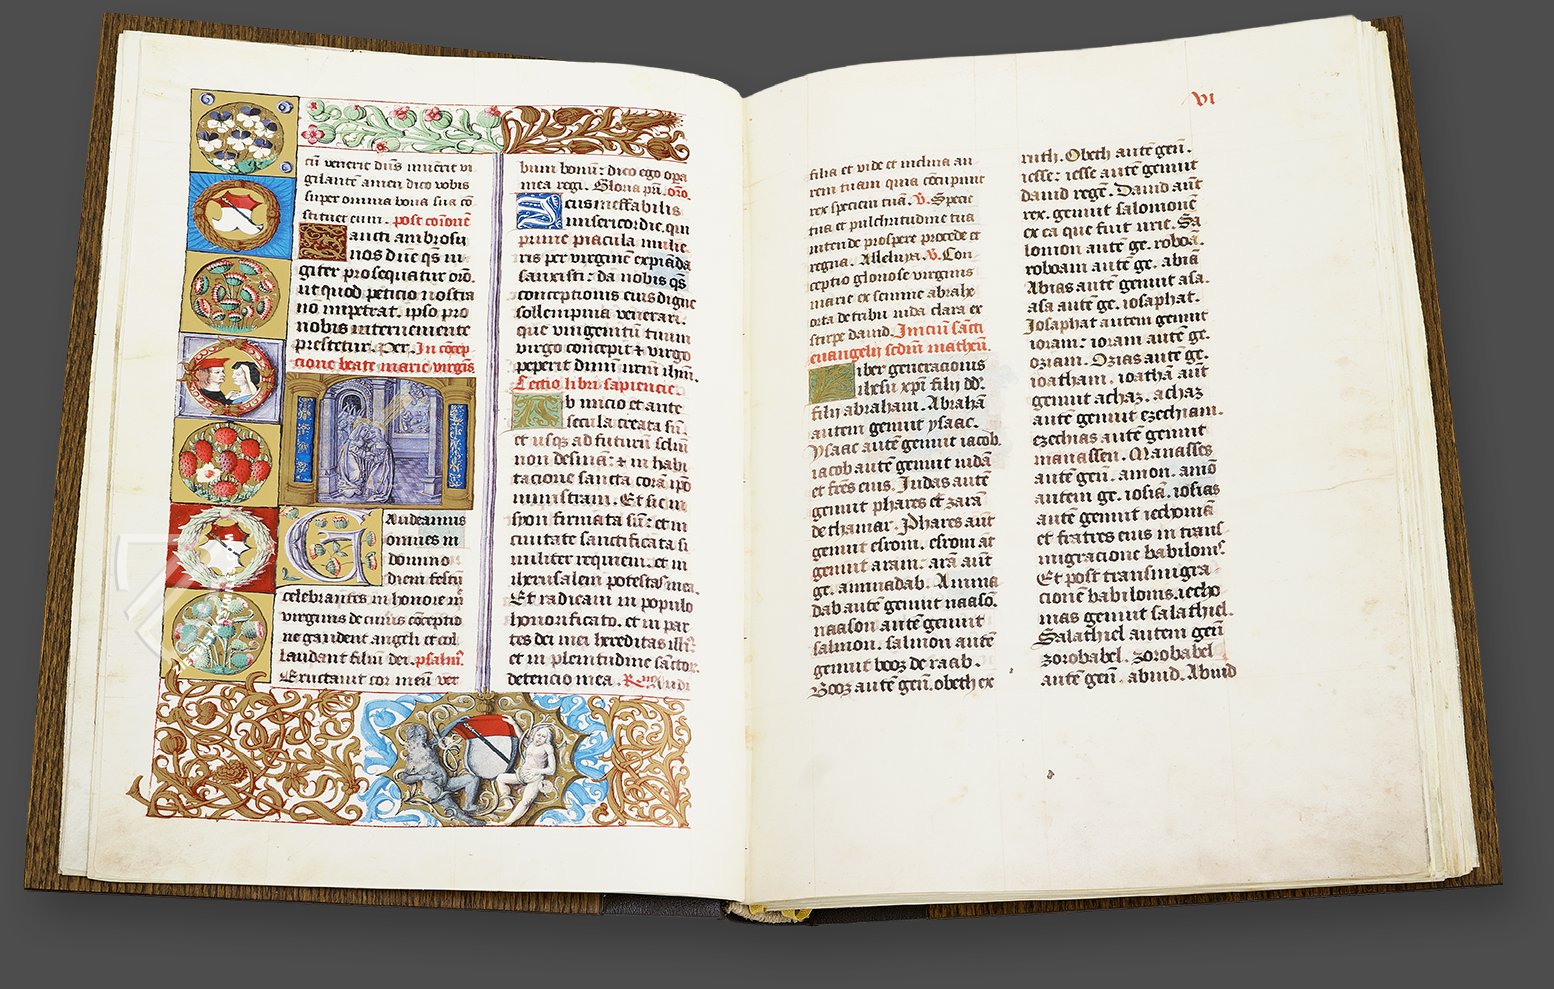 cu venerit dns invenerit vi
gilantē amen dico vobis
super omnia bona sua cō
stituet eum. post cōionē
Sancti ambrosii
nos dne qs iu
giter prosequatur orō.
ut quod peticio nostra
nō impetrat. ipso pro
nobis interveniente
prestetur. Per. In cōcep
cione beate marie virgis
Gaudeamus
omnes in
domino
diem festū
celebrantes in honore
virginis de cuius cōceptio
ne gaudent angeli et col
laudant filiū dei. psalm.
Eructavit cor meū ver
bum bonū: dico ego opa
mea regi. Gloria pri. orō.
Deus ineffabilis
misericordie. qui
prime piacula mulie
ris per virginē expiāda
sanxisti: da nobis qs
conceptionis eius digne
sollempnia venerari.
que vnigenitū tuum
virgo concepit & virgo
peperit dnm nrm ihm.
Lectio libri sapiencie
Ab inicio et ante
secula creata sū.
et usqz ad futurū sclm
non desinā: & in habi
tacione sancta corā ipo
ministravi. Et sic in
syon firmata sū: et in
civitate sanctificata si
militer requievi. et in
iherusalem potestas mea.
Et radicavi in populo
honorificato. et in par
tes dei mei hereditas illi
et in plenitudine sāctor.
detencio mea. Audi
VI
filia et vide et inclina au
rem tuam quia cōcupivit
rex speciem tuā. V. Specie
tua et pulchritudine tua
intende prospere procede et
regna. Alleluya. V. Con
ceptio gloriose virginis
marie ex semine abrahe
orta de tribu iuda clara ex
stirpe david. Iniciū sācti
euangelij scdm matheū.
Liber generacionis
ihesu xpi filii dd.
filii abraham. Abrahā
autem genuit ysaac.
Ysaac autē genuit iacob.
iacob autē genuit iudā
et frēs eius. Iudas autē
genuit phares et zarā
de thamar. Phares aūt
genuit esrom. esrom aūt
genuit aram. arā aūt
ge. aminadab. Amina
dab autē genuit naasō.
naason autē genuit
salmon. salmon autē
genuit booz de racab.
Booz autē genu. obeth ex
ruth. Obeth autē gen.
iesse: iesse autē genuit
david regē. David aūt
rex. genuit salomonē
ex ea que fuit urie. Sa
lomon autē ge. roboā.
roboam autē ge. abiā
Abias autē genuit asa.
asa autē ge. iosaphat.
Iosaphat autem genuit
ioram: ioram autē ge.
oziam. Ozias autē ge.
ioatham. ioathā aūt
genuit achaz. achaz
autē genuit ezechiam.
ezechias autē genuit
manassen. Manasses
autē gen. amon. amō
autem ge. iosiā. iosias
autē genuit iechoniā
et fratres eius in trans
migracione babilonis
Et post transmigra
cionē babilonis. iecho
nias genuit salathiel.
Salathiel autem gen
zorobabel. zorobabel
autē gen. abiud. Abiud